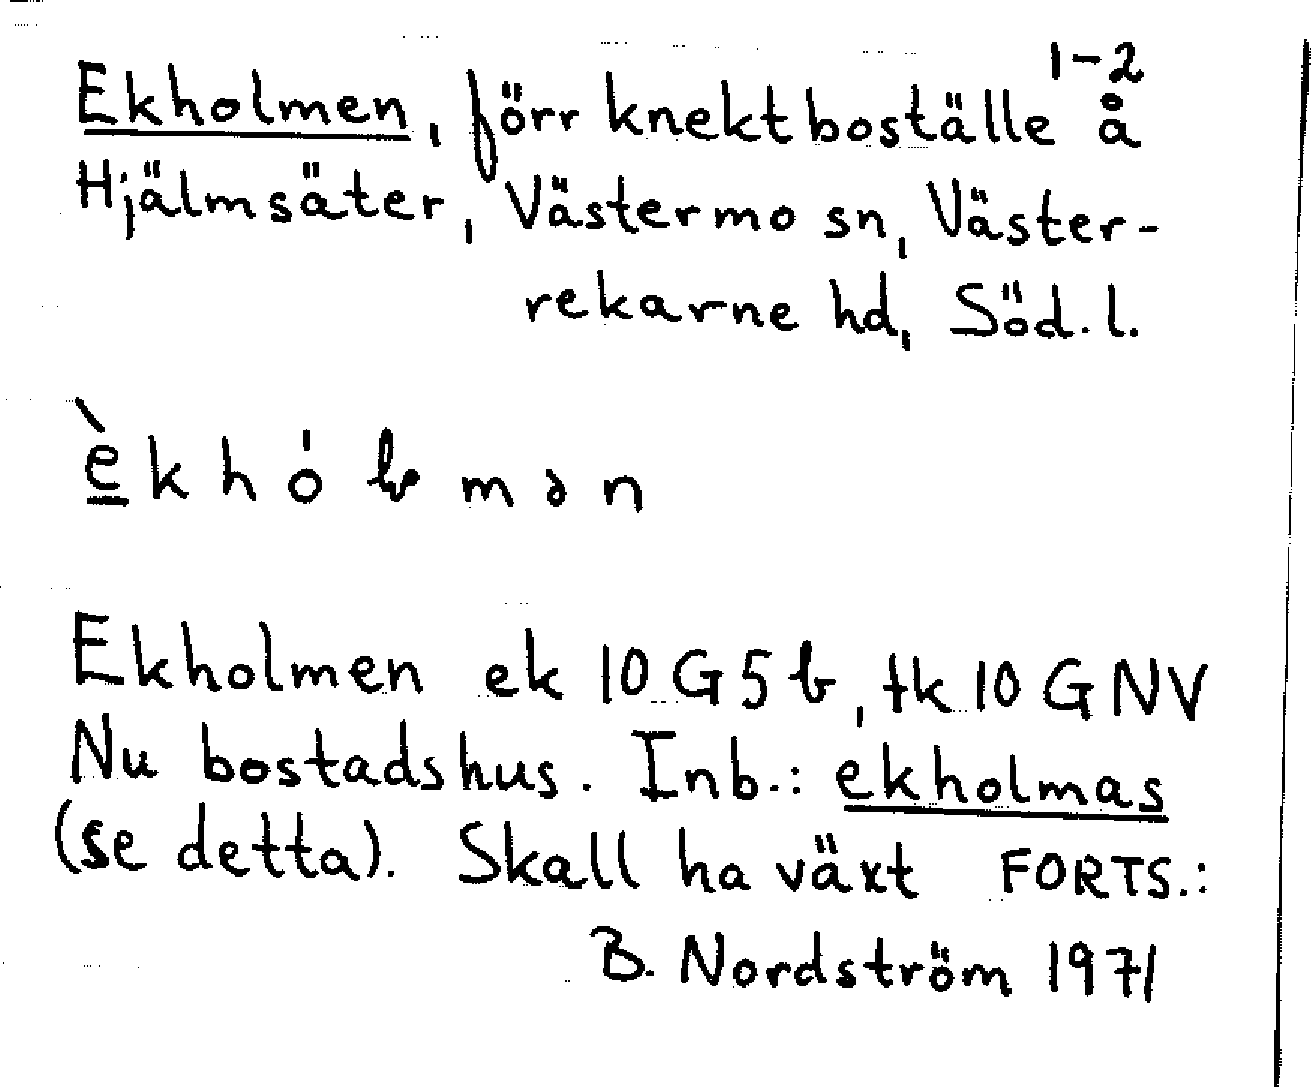 Ekholmen, förr knektboställe 1-2 å
Hjälmsäter, Västermo sn, Väster-
rekarne hd, Söd. l.
èkhólmən
Ekholmen ek 10 G 5 b, tk 10 G NV
Nu bostadshus. Inb.: ekholmas
(se detta). Skall ha växt FORTS.:
B. Nordström 1971